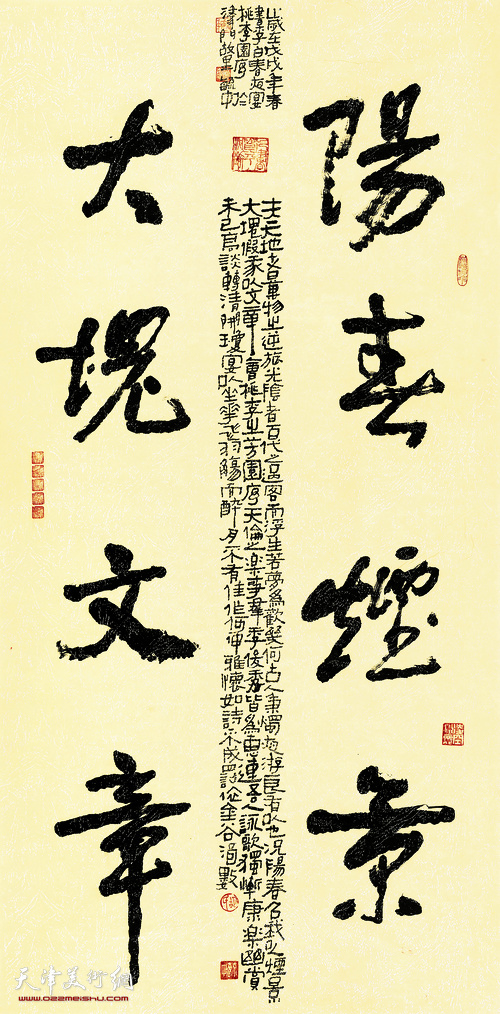 陽春煙景
歲在戊戌年春
書李白春夜宴
桃李園序於
津門故里
夫天地者萬物之逆旅光陰者百代之過客而浮生若夢為歡幾何古人秉燭夜游良有以也況陽春召我以煙景
大塊假我以文章會桃李之芳園序天倫之樂事群季俊秀皆為惠連吾人詠歌獨慚康樂幽賞
未已高談轉清開瓊宴以坐華飛羽觴而醉月不有佳作何伸雅懷如詩不成罰依金谷酒數
大塊文章
天津美术网
www.022meishu.com